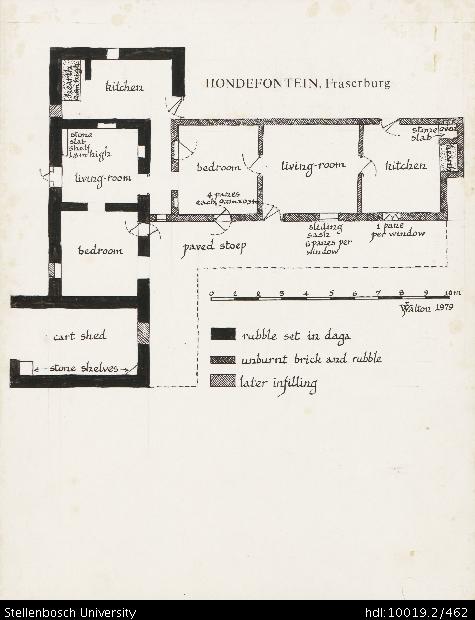 HONDEFONTEIN, Fraserburg
kitchen
stone
slab
shelf
high
living-room
bedroom
4 panes
each
living-room
kitchen
stone
slab
oven
bedroom
paved stoep
sliding
sash
6 panes per
window
1 pane
per window
0 1 2 3 4 5 6 7 8 9 10m
Walton 1979
cart shed
stone shelves
rubble set in daga
unburnt brick and rubble
later infilling
Stellenbosch University
hdl:10019.2/462